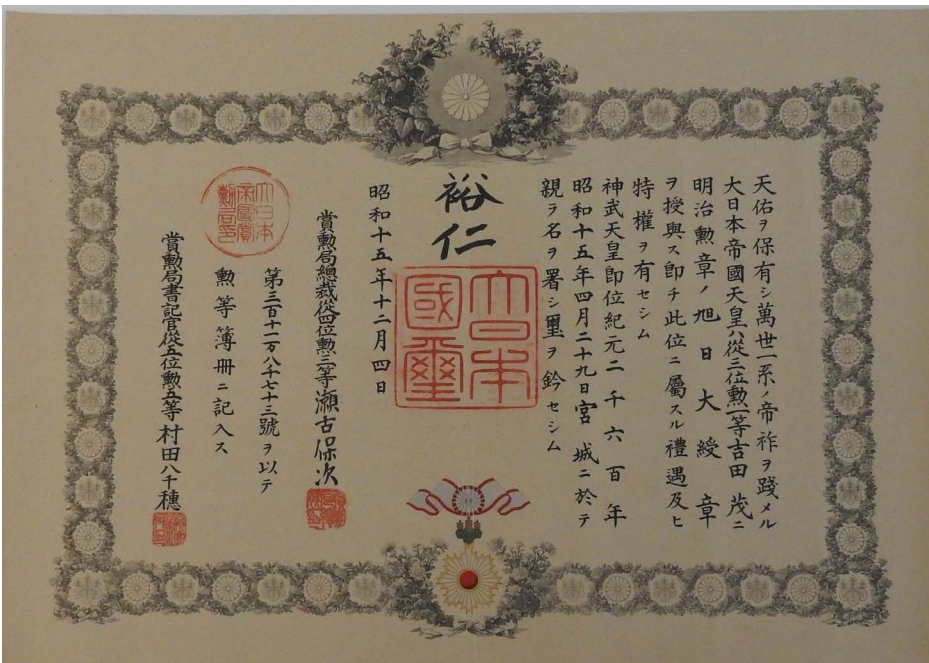 天佑ヲ保有シ萬世一系ノ帝祚ヲ踐メル
大日本帝國天皇ハ從三位勲一等吉田茂ニ
明治勲章ノ旭日大綬章
ヲ授與ス即チ此位ニ屬スル禮遇及ヒ
特權ヲ有セシム
神武天皇即位紀元二千六百年
昭和十五年四月二十九日宮城ニ於テ
親ラ名ヲ署シ璽ヲ鈐セシム
裕仁
大日本國璽
昭和十五年十二月四日
賞勲局總裁從四位勲三等瀬古保次
第三百十一万八千七十三號ヲ以テ
勲等簿册ニ記入ス
大日本帝國賞勲局印
賞勲局書記官從五位勲五等村田八千穗